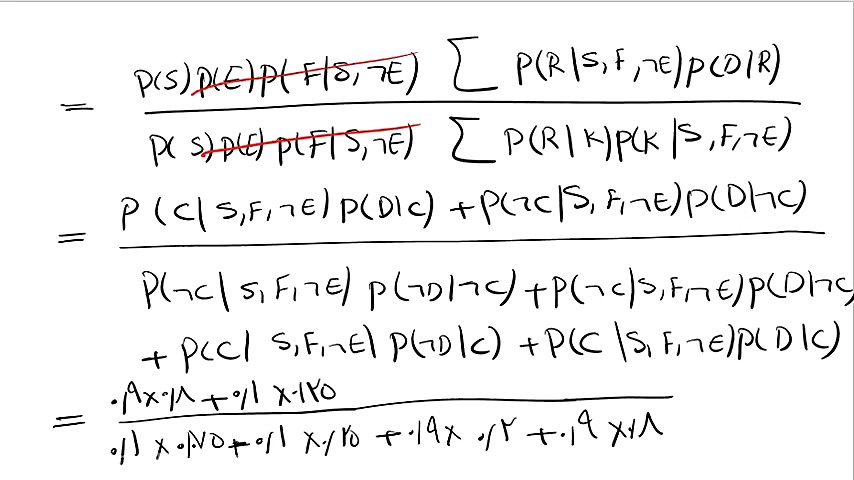 = P(S)P(E)P(F|S,¬E) ∑ P(R|S,F,¬E)P(D|R)
P(S)P(E)P(F|S,¬E) ∑ P(R|K)P(K|S,F,¬E)
= P(C|S,F,¬E)P(D|C)+P(¬C|S,F,¬E)P(D|¬C)
P(¬C|S,F,¬E)P(¬D|¬C)+P(¬C|S,F,¬E)P(D|¬C
+P(C|S,F,¬E)P(¬D|C)+P(C|S,F,¬E)P(D|C)
= ۰٫۹×۰٫۸+۰٫۱×۰٫۲۵
۰٫۱×۰٫۷۵+۰٫۱×۰٫۲۵+۰٫۹×۰٫۲+۰٫۹×۰٫۸